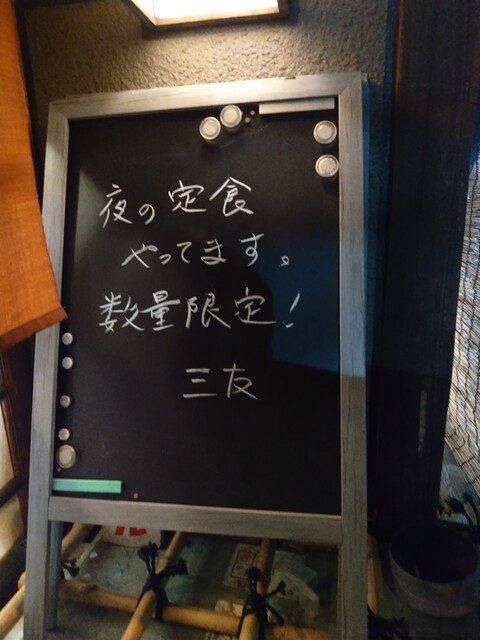 夜の定食
やってます。
数量限定!
三友